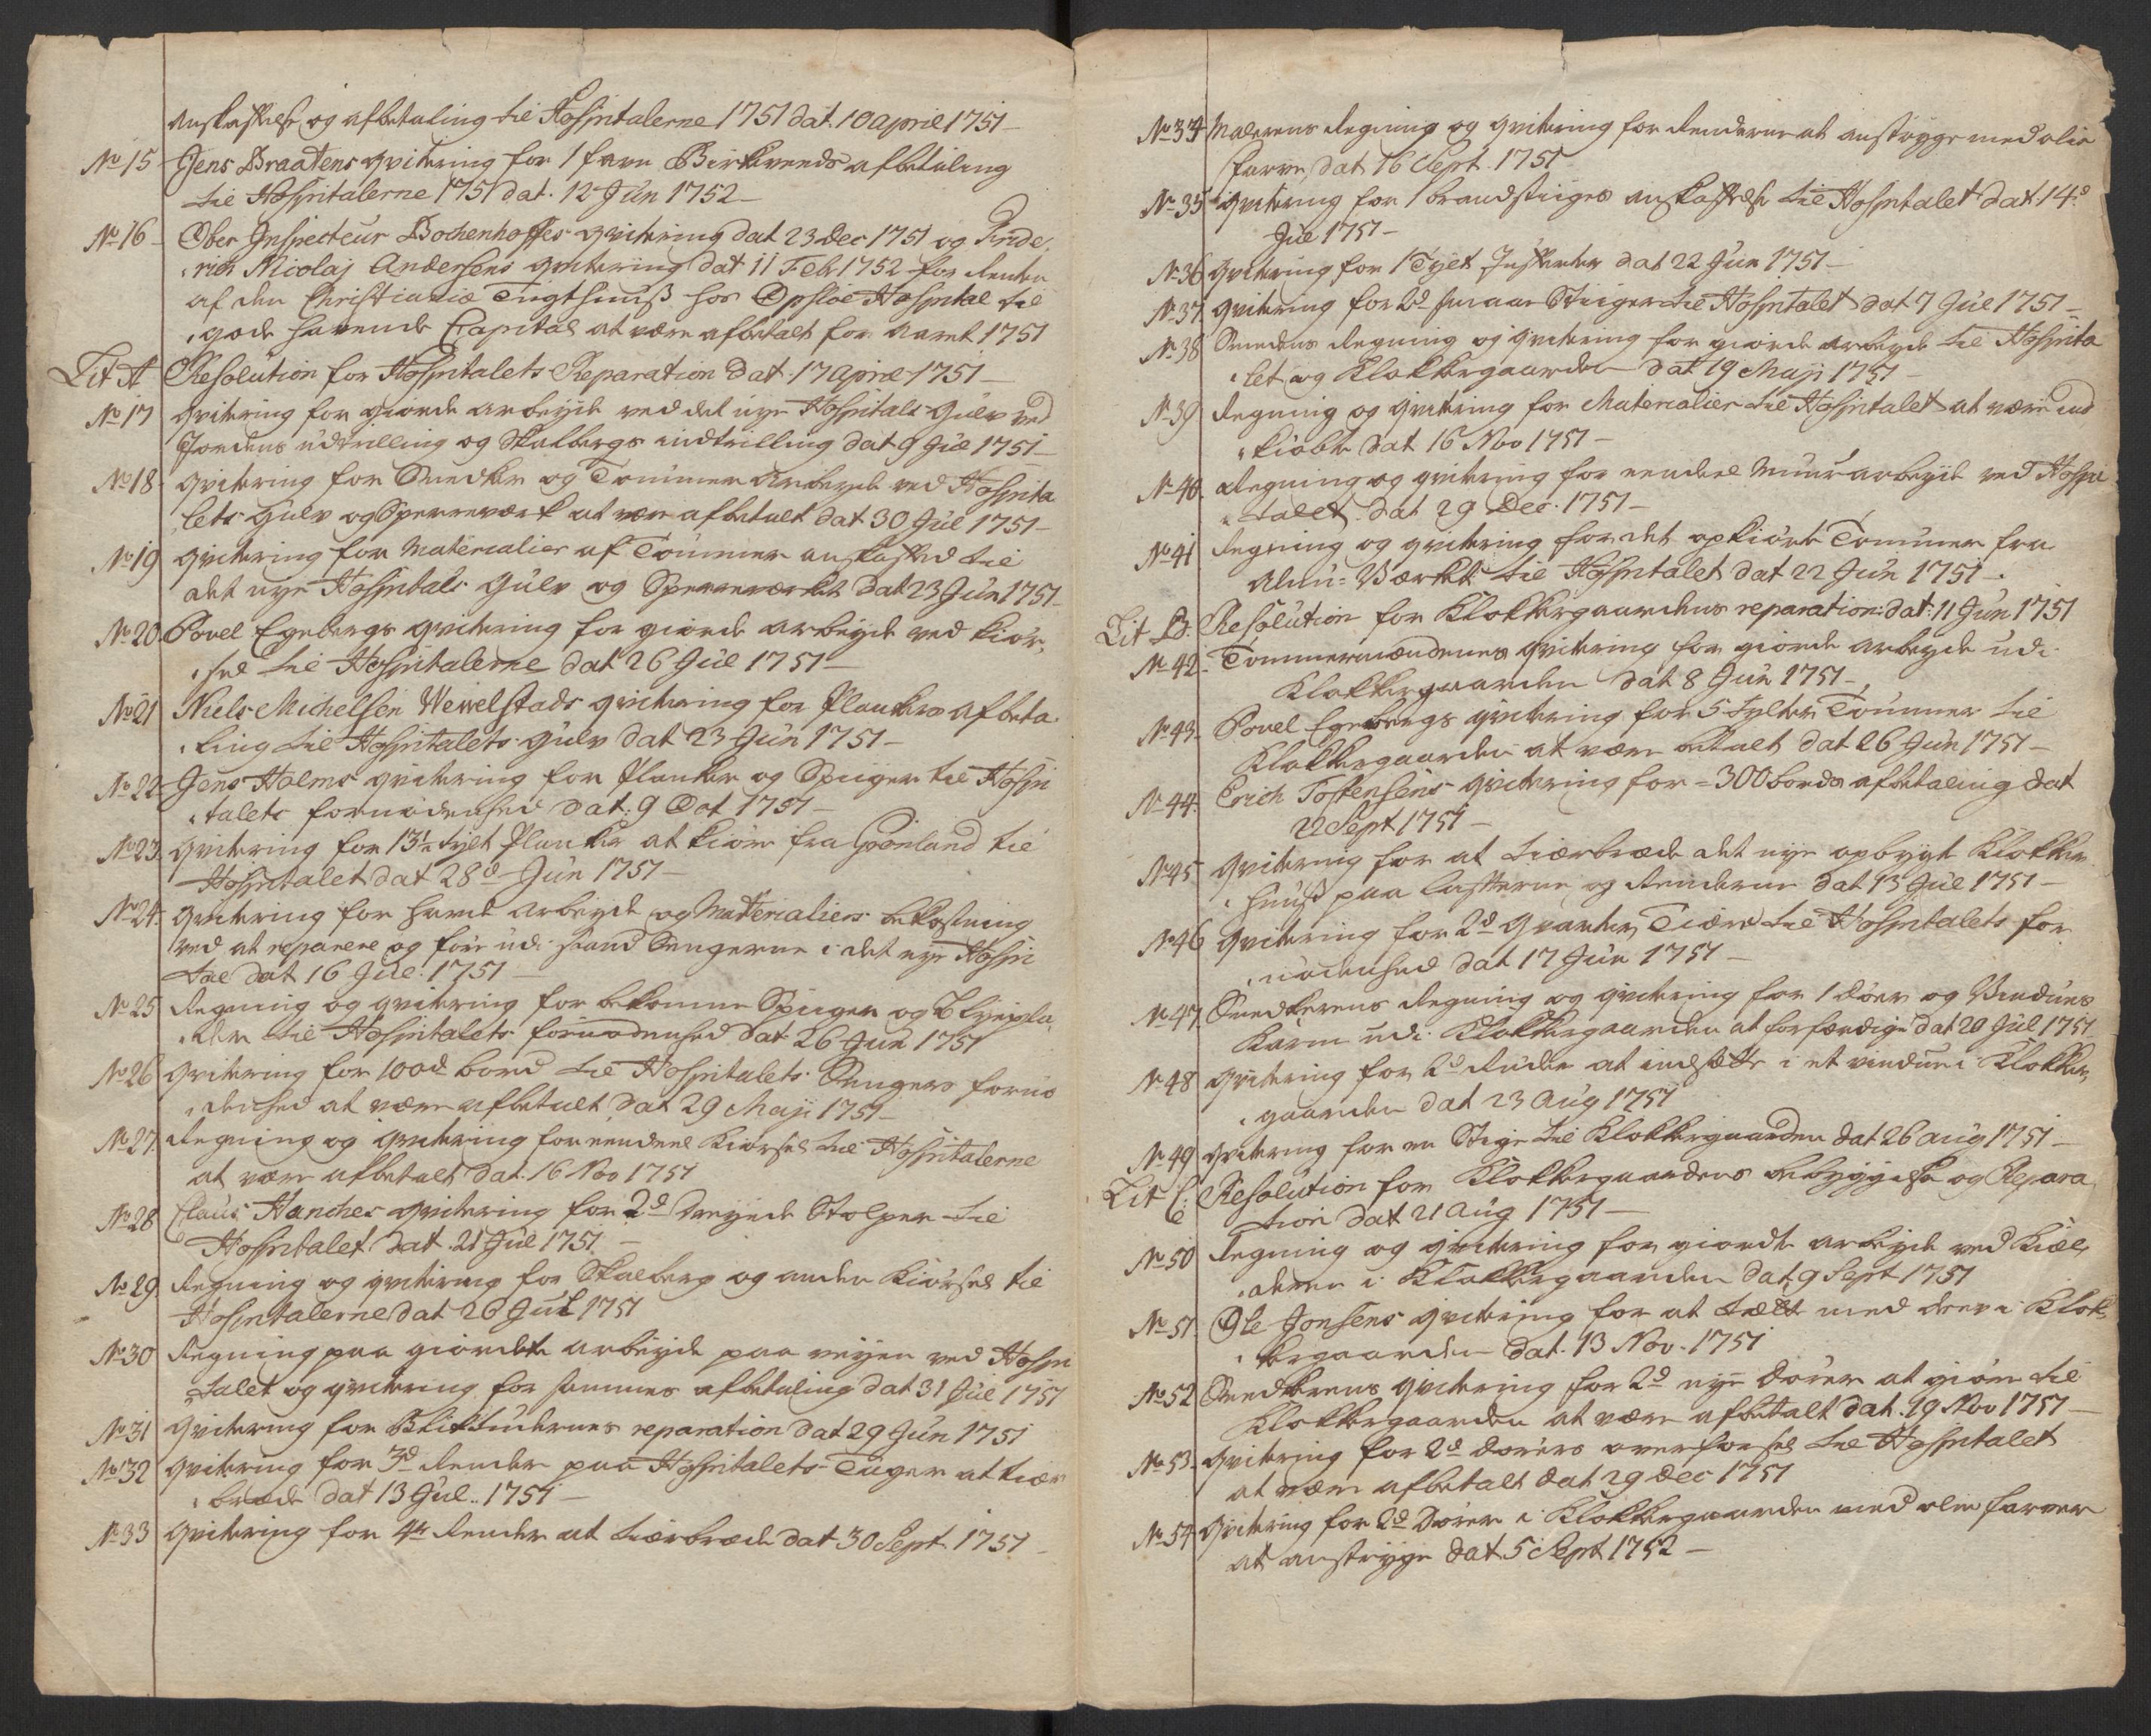 Anskaffelse og afbetaling til Hospitalerne 1751 dat. 10 april 1751
No 15 Jens Braatens qvitering for 1 favn Birkeveeds afbetaling
til Hospitalerne 1751 dat. 12 Jun 1752
No 16 Ober Inspecteur Bochenhoffes qvitering dat 23 Dec 1751 og Fride
rich Nicolaj Andersens qvitering dat 11 Febr 1752 for Renten
af den Christianiæ Tugthuuß hos Opsloe Hospital til
gode havende Capital at være afbetalt for Aaret 1751
Lit A Resolution for Hospitalets Reparation dat. 17 April 1751
No 17 qvitering for giorde arbeyde ved det nye Hospitals Gulv ved
Jordens udtrilling og Skalbergs indtrilling dat 9 Jul 1751
No 18 qvitering for Snedker og Tømmer Arbeyde ved Hospita
lets Gulv og Sperreværk at være afbetalt dat 30 Jul 1751
No 19 qvitering for Materialier af Tømmer anskaffed til
det nye Hospitals Gulv og Sperreværket dat 23 Jun 1751
No 20 Povel Egebergs qvitering for giorde arbeyde ved Kiør
sel til Hospitalerne dat 26 Jul 1751
No 21 Niels Michelsen Wevelstads qvitering for Plankers afbeta
ling til Hospitalets Gulv dat 23 Jun 1751
No 22 Jens Holms qvitering for Planker og Spiiger til Hospi
talets fornødenhed dat. 9 Oct 1751
No 23 qvitering for 13½ tylt Planker at kiøre fra Grønland til
Hospitalet dat 28d Jun 1751
No 24 qvitering for havde arbeyde og Materialiers bekostning
ved at reparere og føre udi stand Sengerne i det nye Hospi
tal dat 16 Jul. 1751
No 25 Regning og qvitering for bekomne Spiiger og Blyepla
der til Hospitalets fornødenhed dat 26 Jun 1751
No 26 qvitering for 100d bord til Hospitalets Sengers fornø
denhed at være afbetalt dat 29 Maji 1751
No 27 Regning og qvitering for eendeel Kiørsel til Hospitalerne
at være afbetalt dat. 16 Nov 1751
No 28 Claus Hanches qvitering for 2d dreyede Stolper til
Hospitalet dat 21 Jul 1751
No 29 Regning og qvitering for Skalberg og anden Kiørsel til
Hospitalerne dat 26 Jul 1751
No 30 Regning paa giordte arbeyde paa veyen ved Hospi
talet og qvitering for sammes afbetaling dat 31 Jul 1751
No 31 qvitering for Bliktudernes reparation dat 29 Jun 1751
No 32 qvitering for 3d Render paa Hospitalets Tager at tiær
bræde dat 13 Jul. 1751
No 33 qvitering for 4re Render at tiærbræde dat 30 Sept. 1751
No 34 Malerens Regning og qvitering for Renderne at anstryge med olie
farve, dat 16 Sept. 1751
No 35 qvitering for 1 brandstiiges anskaffelse til Hospitalet dat. 14d
Jul 1751
No 36 qvitering for 1 Tylt dat 22 Jun 1751
No 37 qvitering for 2d smaae Stiiger til Hospitalet dat 7 Jul 1751
No 38 Smedens Regning og qvitering for giorde arbeyde til Hospita
let og Klokkergaarden dat 19 Maji 1751
No 39 Regning og qvitering for Materialier til Hospitalet at være ind
kiøbt dat 16 Nov 1751
No 40 Regning og qvitering for eendeel Muurarbeyde ved Hospi
talet dat 29 Dec. 1751
No 41 Regning og qvitering for det opkiørte Tømmer fra
Alun-Værket til Hospitalet dat 22 Jun 1751
Lit B. Resolution for Klokkergaardens reparation dat: 11 Jun 1751
No 42 Tømmermændenes qvitering for giorde arbeyde udi
Klokkergaarden dat 8 Jun 1751
No 43 Povel Egebergs qvitering for 5 tylter Tømmer til
Klokkergaarden at være betalt dat 26 Jun 1751
No 44. Erich Tostensens qvitering for 300 bords afbetaling dat
22 Sept 1751
No 45 qvitering for at tiærbræde det nye opbygte Klokker
huuß paa lafterne og Renderne dat 13 Jul 1751
No 46 qvitering for 2d qvarter Tiære til Hospitalets for
nødenhed dat 17 Jun 1751
No 47. Snedkerens Regning og qvitering for 1 døer og Vindues
Karm udi Klokkergaarden at forfærdige dat 20 Jul 1751
No 48 qvitering for 2d Ruder at indsætte i et vindue i Klokker
gaarden dat 23 Aug 1751
No 49 qvitering for en Stige til Klokkergaarden dat 26 aug 1751
Lit C: Resolution for Klokkergaardens bebyggelse og Repara
tion dat 21 Aug 1751
No 50 Regning og qvitering for giordte arbeyde ved Kiæl
deren i Klokkergaarden dat 9 Sept 1751
No 51. Ole Jonsens qvitering for at tække med i Klok
kergaarden dat. 13 Nov. 1751
No 52 Snedkerens qvitering for 2d nye dører at giøre til
Klokkergaarden at være afbetalt dat. 19 Nov 1751
No 53. qvitering for 2d dørers overførsel til Hospitalet
at være afbetalt dat 29 Dec 1751
No 54 qvitering for 2d Dører i Klokkergaarden med olie farver
at anstryge dat 5 Sept 1752